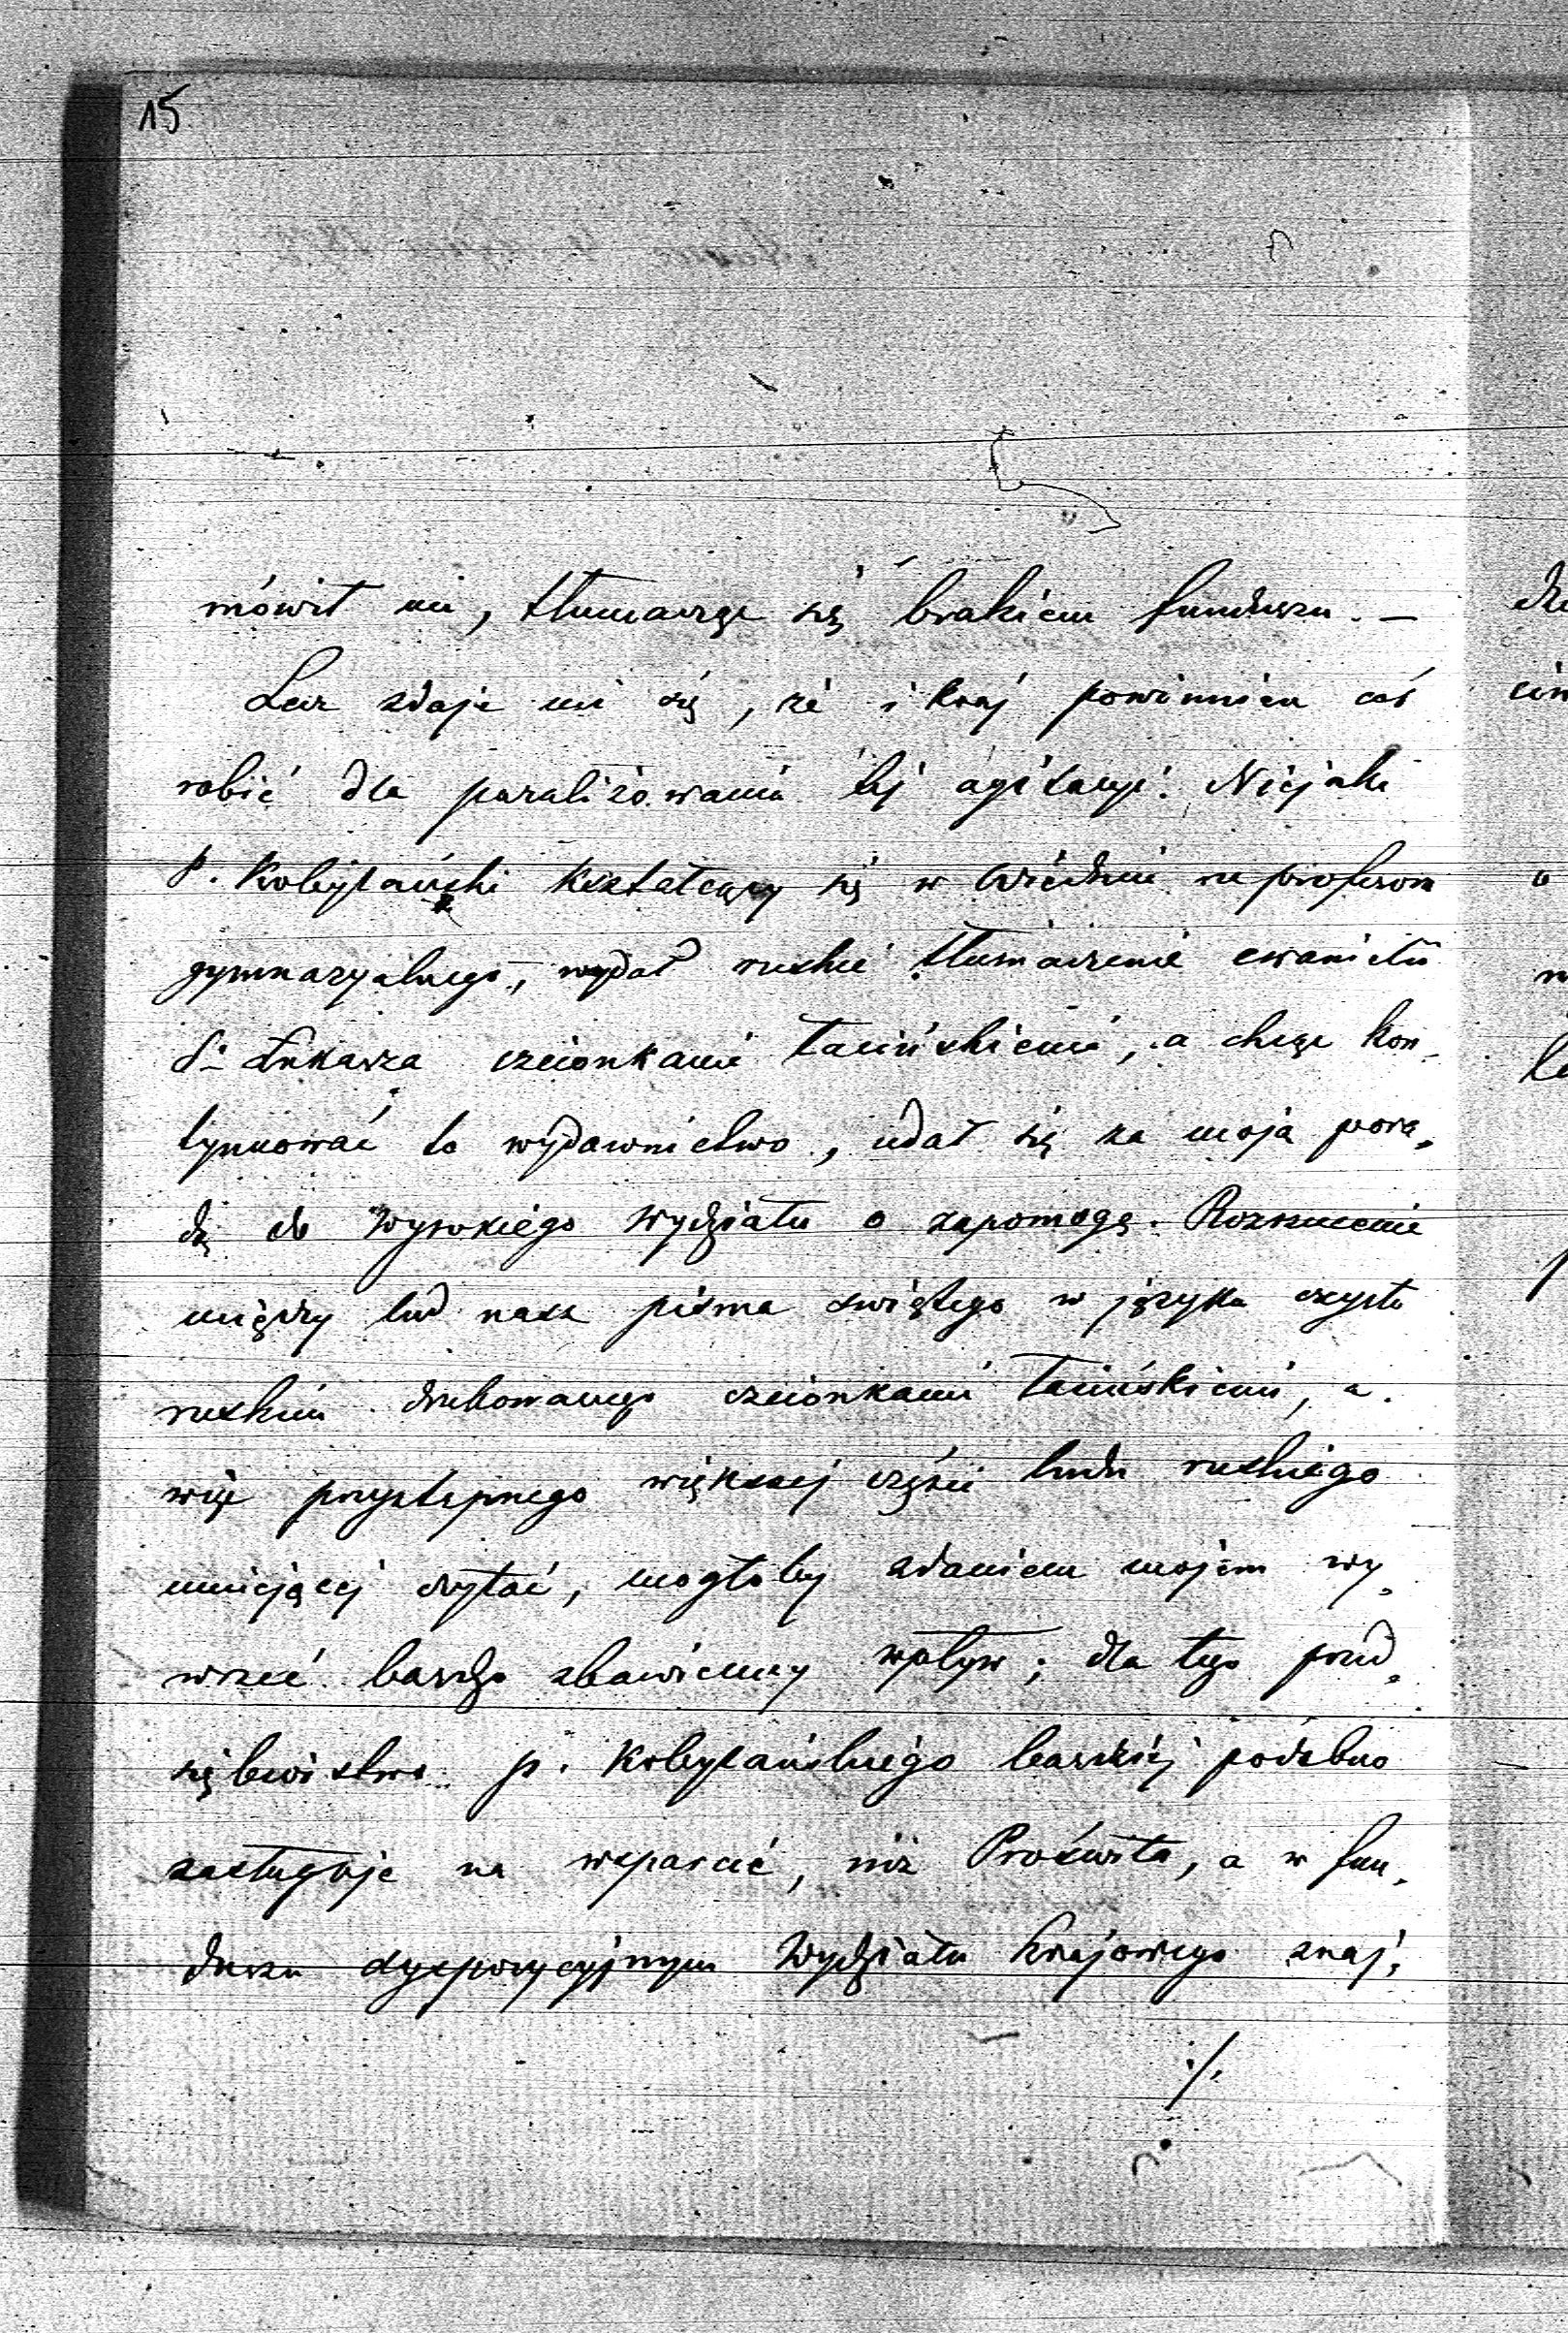 15
mówił mi, tłumacząc się brakiem funduszu. —
Lecz zdaje mi się, że i kraj powinnien coś
robić dla paraliżowania tej agitacyi. Niejaki
p. Kobylański kształcący się w Wiedniu na profesora
gymnazyalnego, wydał ruskie tłumaczenie ewanielii
Sº Łukasza czcionkami łacińskiemi, a chcąc kon-
tynuować to wydawnictwo, udał się za moją pora-
dą do wysokiego wydziału o zapomogę. Rozrzucenie
między lud nasz pisma świętego w języku czysto
ruskim drukowanego czcionkami łacińskiemi, a
więc przystępnego większej części ludu ruskiego
umiejącej czytać, mogłoby zdaniem mojem wy-
wrzeć bardzo zbawienny wpływ; dla tego przed-
siębwistwo p. Kobylańskiego bardziej podobno
zasługuje na wsparcie, niż Proświta, a w fun-
duszu dyspozycyjnym Wydziału krajowego znaj-
./.